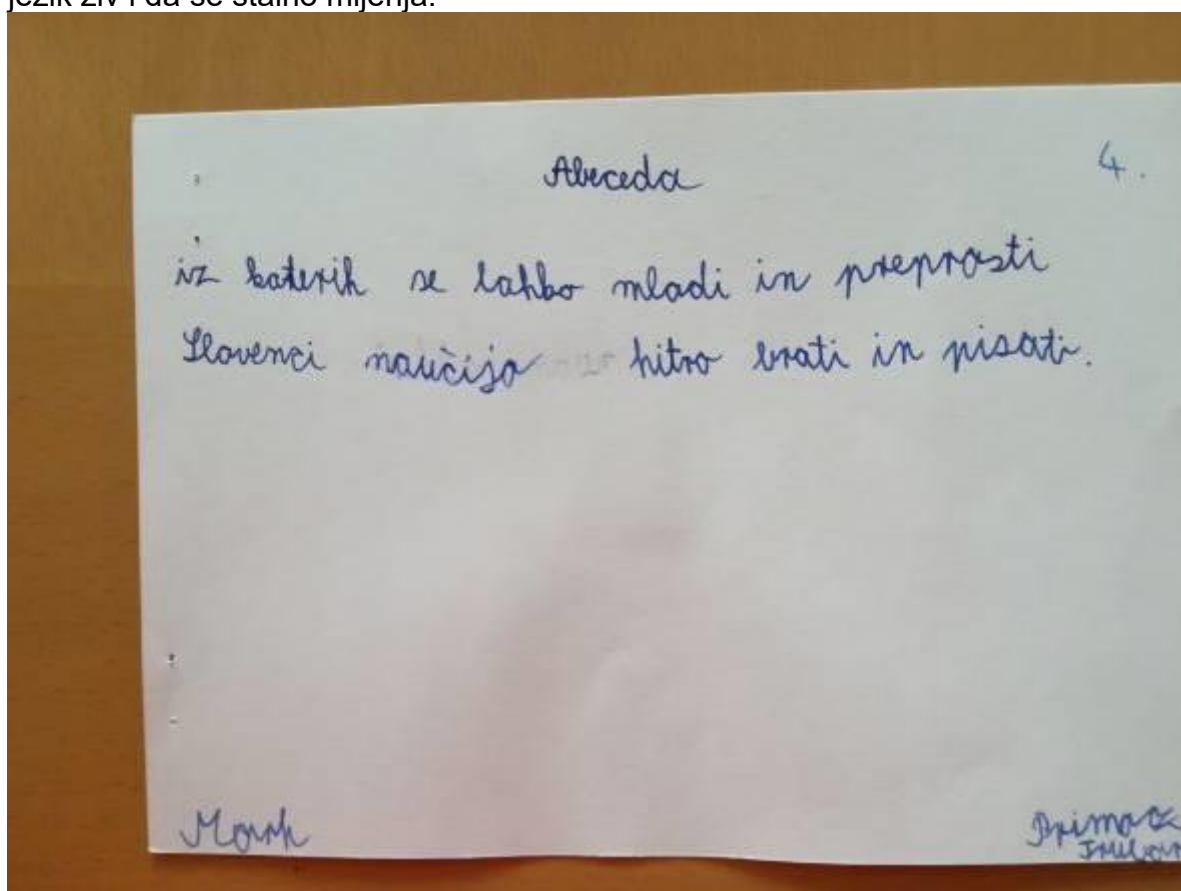 jezik živ i da se stalno mijenja.
Abeceda
4.
iz katerih se lahko mladi in preprosti
Slovenci naučijo hitro brati in pisati.
Mark
Primož